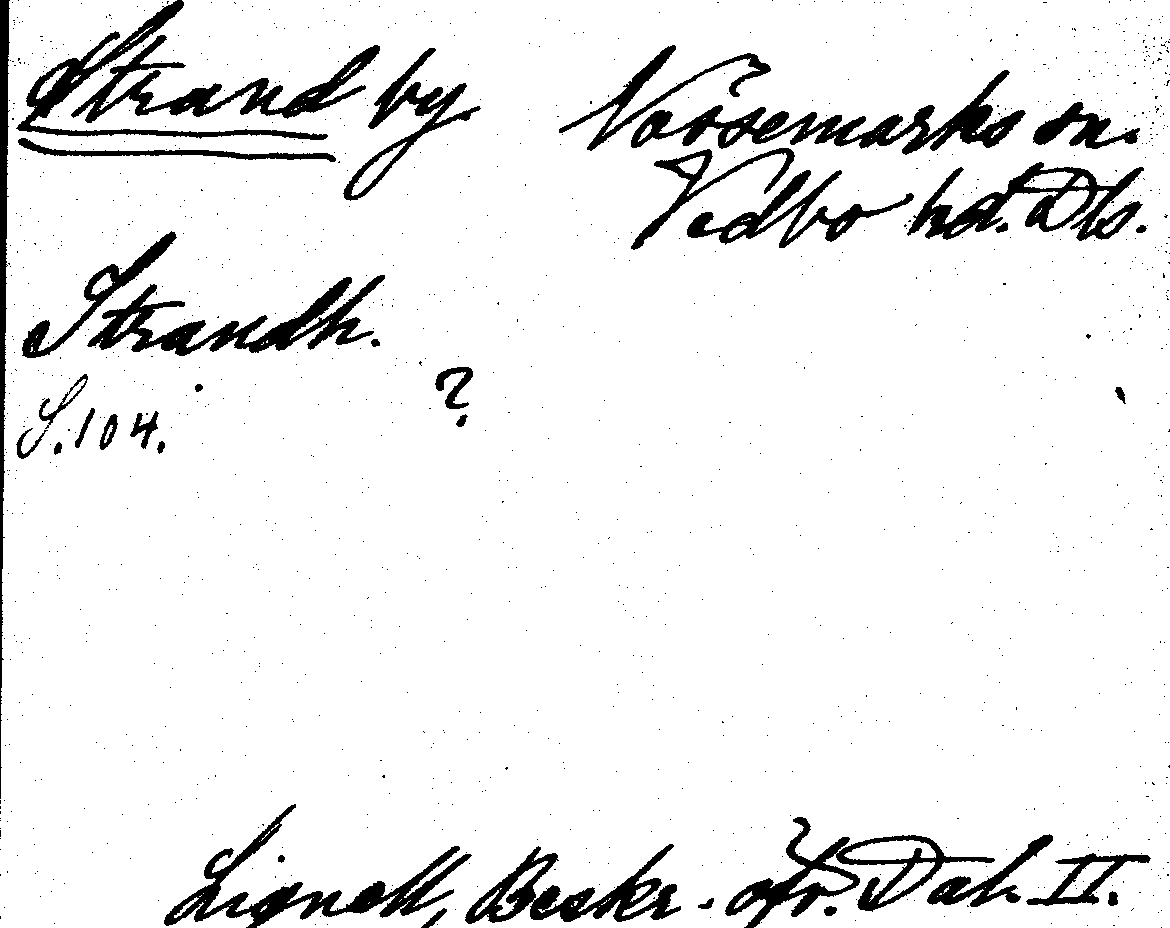 Strand by. Nössemarks sn.
Vedbo hd. Dls.
Strandh.
S. 104. ?
Lignell, Beskr. öfr. Dal. II.